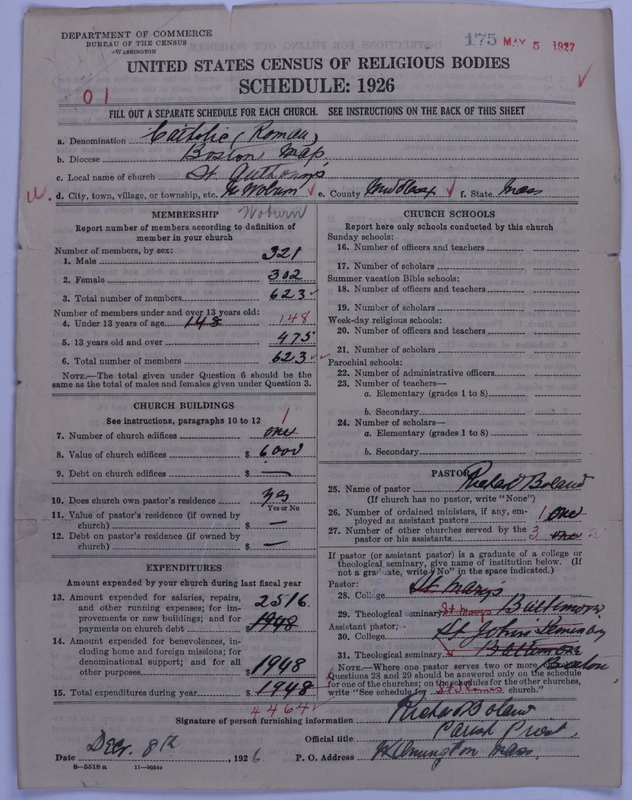 DEPARTMENT OF COMMERCE
BUREAU OF THE CENSUS
WASHINGTON
175 MAY 5 1927
UNITED STATES CENSUS OF RELIGIOUS BODIES
SCHEDULE: 1926
01
FILL OUT A SEPARATE SCHEDULE FOR EACH CHURCH. SEE INSTRUCTIONS ON THE BACK OF THIS SHEET
a. Denomination Catholic (Roman)
b. Diocese Boston, Mass
c. Local name of church St Anthony's
d. City, town, village, or township, etc. N. Woburn e. County Middlesex f. State Mass
Woburn
MEMBERSHIP
Report number of members according to definition of
member in your church
Number of members, by sex:
1. Male 321
2. Female 302
3. Total number of members 623
Number of members under and over 13 years old:
4. Under 13 years of age 148 148
5. 13 years old and over 475
6. Total number of members 623
NOTE.—The total given under Question 6 should be
the same as the total of males and females given under Question 3.
CHURCH BUILDINGS
See instructions, paragraphs 10 to 12
1
7. Number of church edifices one
8. Value of church edifices $ 6000
9. Debt on church edifices $ —
10. Does church own pastor's residence yes
Yes or No
11. Value of pastor's residence (if owned by
church) $ —
12. Debt on pastor's residence (if owned by
church) $ —
EXPENDITURES
Amount expended by your church during last fiscal year
13. Amount expended for salaries, repairs,
and other running expenses; for im-
provements or new buildings; and for
payments on church debt $ 2516 1948
14. Amount expended for benevolences, in-
cluding home and foreign missions; for
denominational support; and for all
other purposes $ 1948
15. Total expenditures during year $ 1948
4464
CHURCH SCHOOLS
Report here only schools conducted by this church
Sunday schools:
16. Number of officers and teachers
17. Number of scholars
Summer vacation Bible schools:
18. Number of officers and teachers
19. Number of scholars
Week-day religious schools:
20. Number of officers and teachers
21. Number of scholars
Parochial schools:
22. Number of administrative officers
23. Number of teachers—
a. Elementary (grades 1 to 8)
b. Secondary
24. Number of scholars—
a. Elementary (grades 1 to 8)
b. Secondary
PASTOR
25. Name of pastor Richard Boland
(If church has no pastor, write "None")
26. Number of ordained ministers, if any, em-
ployed as assistant pastors 1 one
27. Number of other churches served by the
pastor or his assistants 3 one 2
If pastor (or assistant pastor) is a graduate of a college or
theological seminary, give name of institution below. (If
not a graduate, write "No" in the space indicated.)
Pastor:
28. College St Mary's
29. Theological seminary St Marys Baltimore
Assistant pastor:
30. College St John's Seminary
31. Theological seminary Baltimore
Boston
NOTE.—Where one pastor serves two or more churches,
Questions 28 and 29 should be answered only on the schedule
for one of the churches; on the schedules for the other churches,
write "See schedule for St Thomas church."
Signature of person furnishing information Richard Boland
Official title Parish Priest
Date Dec. 8th, 1926 P. O. Address Wilmington Mass.
8—5518 a 11—9024